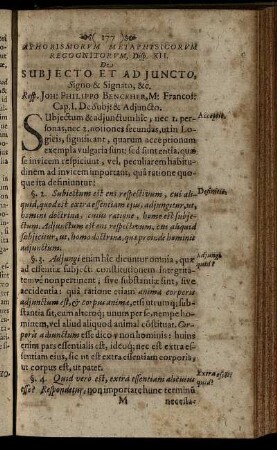 177
APHORISMORUM METAPHYSICORUM
RECOGNITORUM, Disp. XII.
De
SUBJECTO ET ADJUNCTO,
Signo & Signato, &c.
Resp. JOH: PHILIPPO BENCKHER, M: Francof:
Cap. I. De Subje & Adjuncto.
SUbjectum & adjunctum hîc, nec 1. per-
sonas, nec 2. notiones secundas, ut in Lo-
gicis, significant, quarum acceptionum
exempla vulgaria sunt: sed sunt entia, quæ
se invicem respiciunt, vel, peculiarem habitu-
dinem ad invicem important, quâ ratione quo-
que ita definiuntur:
Acceptio.
§. 1. Subjectum est ens respectivum, cui ali-
quid, quod est extra essentiam ejus, adjungitur, ut,
homini doctrina, cujus ratione, homo est subje-
ctum. Adjunctum est ens respectivum, ens aliquid
subjicitur, ut, homo doctrina, quæ proinde homini
adjunctum.
Definitio.
§. 3. Adjungi enim hîc dicuntur omnia, quæ
ad essentiæ subjecti constitutionem Integrita-
temve non pertinent; sive substantiæ sint, sive
accidentia: quâ ratione etiam animæ corporis
adjunctum est, & corpus animæ, etsi utrumq; sub-
stantia sit, cum alteroq; unum per se, nempe ho-
minem, vel aliud quoddam animal cōstituat. Cor-
poris adjunctum esse dico; non hominis: hujus
enim pars essentialis est, ideoq; nec est extra es-
sentiam ejus, sic ut est extra essentiam corporis,
ut corpus est, ut patet.
Adjungi
quid?
§. 4. Quid vero est, extra essentiam alicujus
esse? Respondetur, non importat hunc terminū
Extra essētiā
quid?
M
necessa-